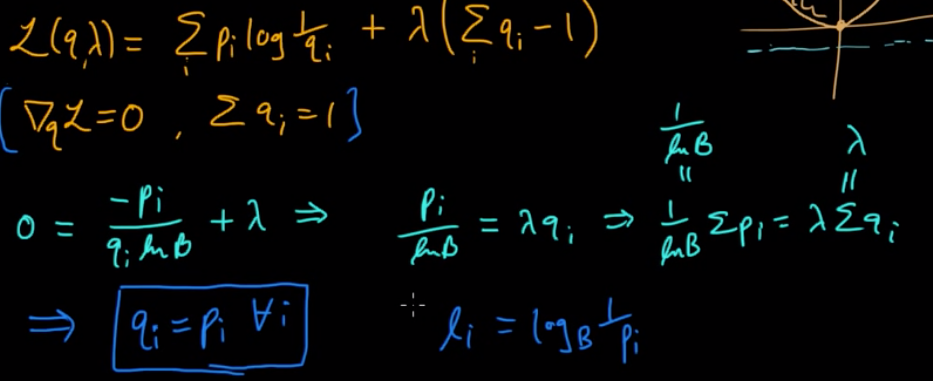 ℒ(q,λ) = Σ_i p_i log 1/q_i + λ(Σ_i q_i - 1)
[∇_q ℒ = 0 , Σ q_i = 1]
0 = -p_i/(q_i ln B) + λ ⇒ p_i/ln B = λ q_i ⇒ 1/ln B = 1/ln B Σ p_i = λ Σ q_i = λ
⇒ q_i = p_i ∀i l_i = log_B 1/p_i